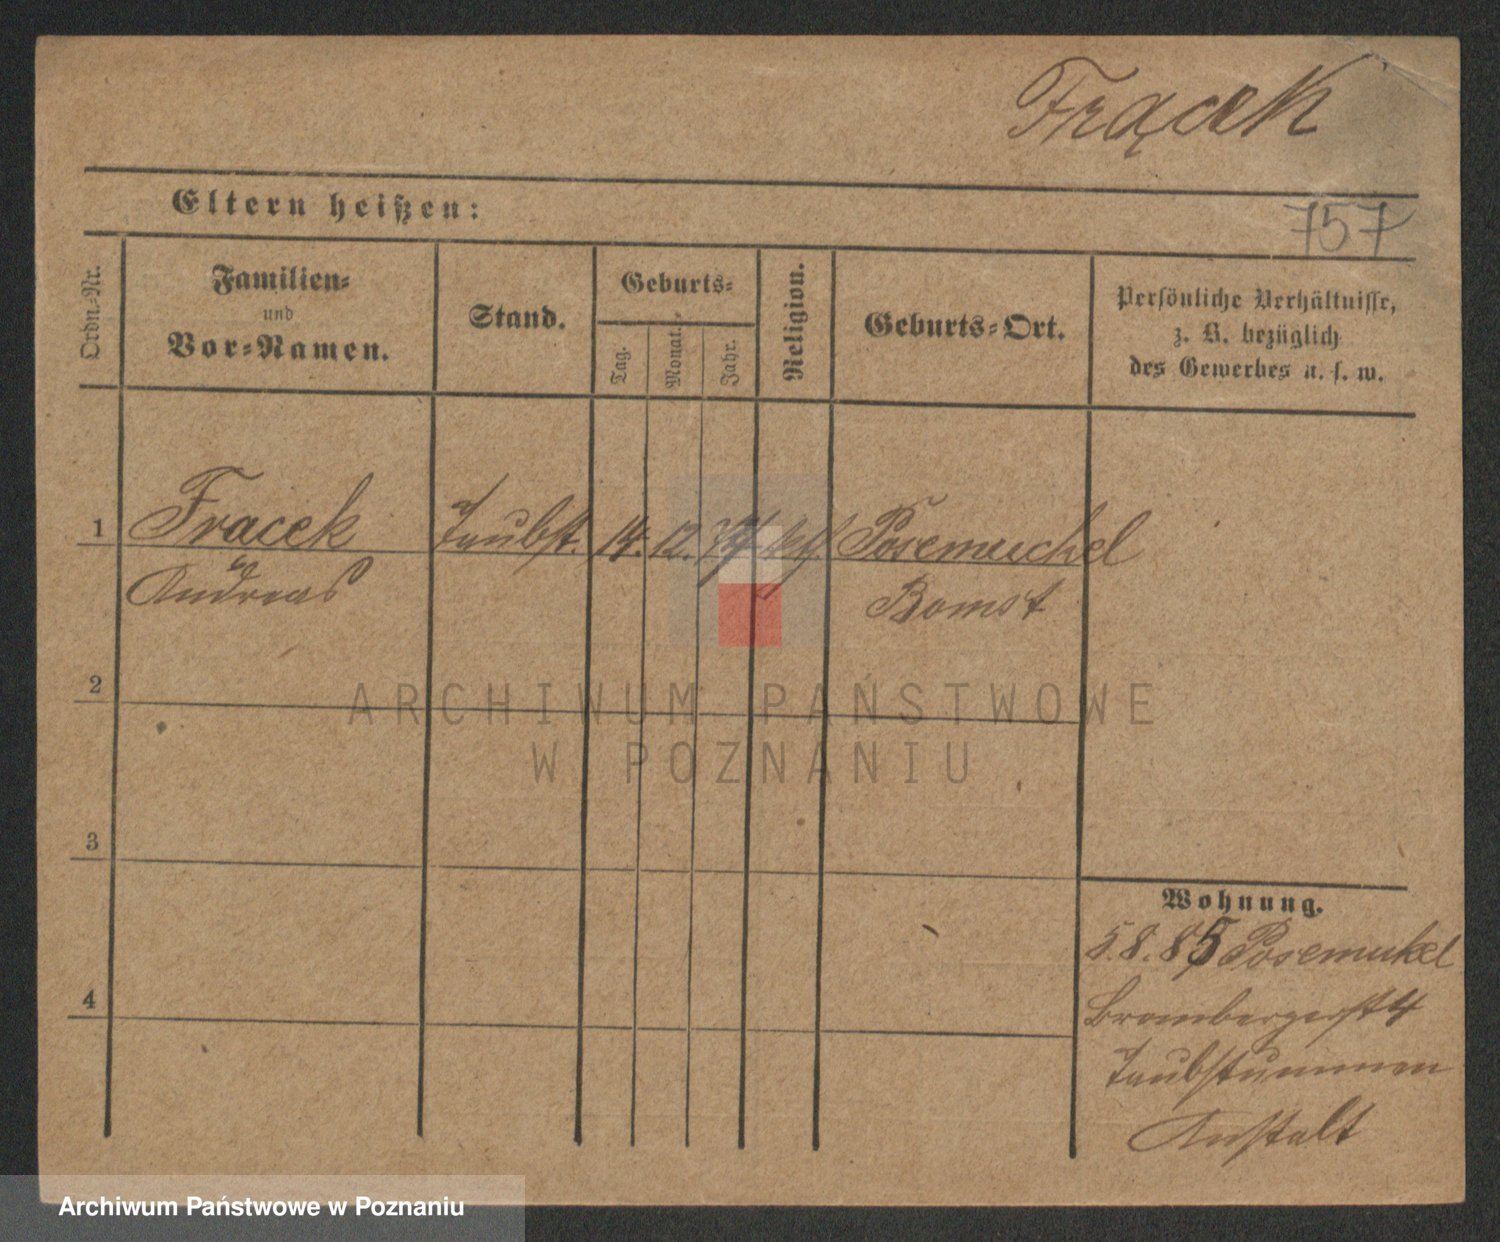 Frącek
Eltern heißen:
757
Ordn.=Nr.
Familien=
und
Vor=Namen.
Stand.
Geburts=
Tag.
Monat.
Jahr.
Religion.
Geburts=Ort.
Persönliche Verhältnisse,
z. B. bezüglich
des Gewerbes u. s. w.
1 Fracek Taubst. 14. 12. 77 Posemuckel
Andreas Bomst
2
ARCHIWUM PAŃSTWOWE
W POZNANIU
3
Wohnung.
5.8.85 Posemukel
4
Brombergerst 4
Taubstummen
Anstalt
Archiwum Państwowe w Poznaniu